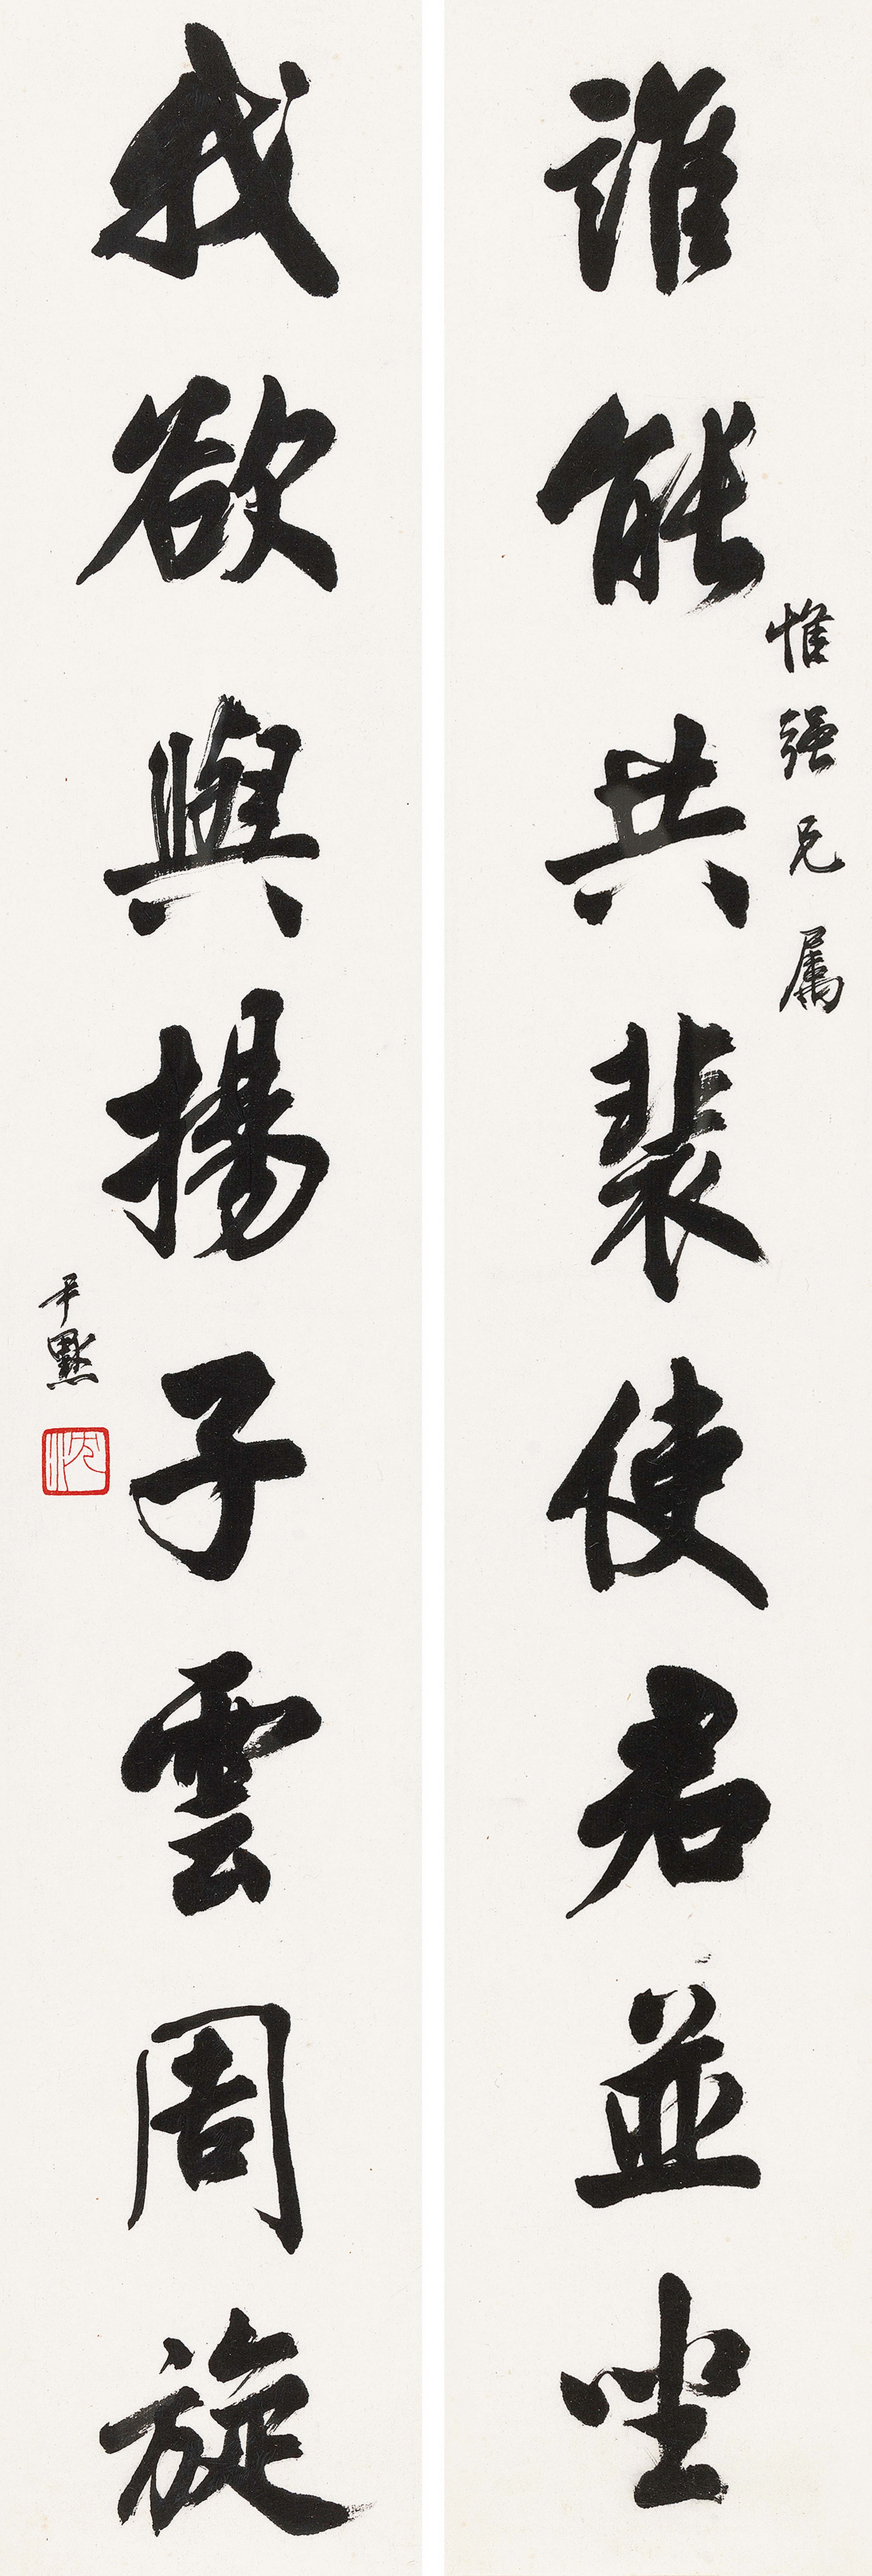 誰能共裴使君並坐
惟強兄屬
我欲與揚子雲周旋
尹默
沈